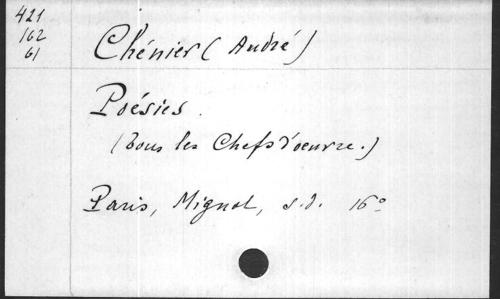 421
162
61
Chénier (André)
Poésies.
(Tous les Chefs d'oeuvre.)
Paris, Mignot, s.d. 16°